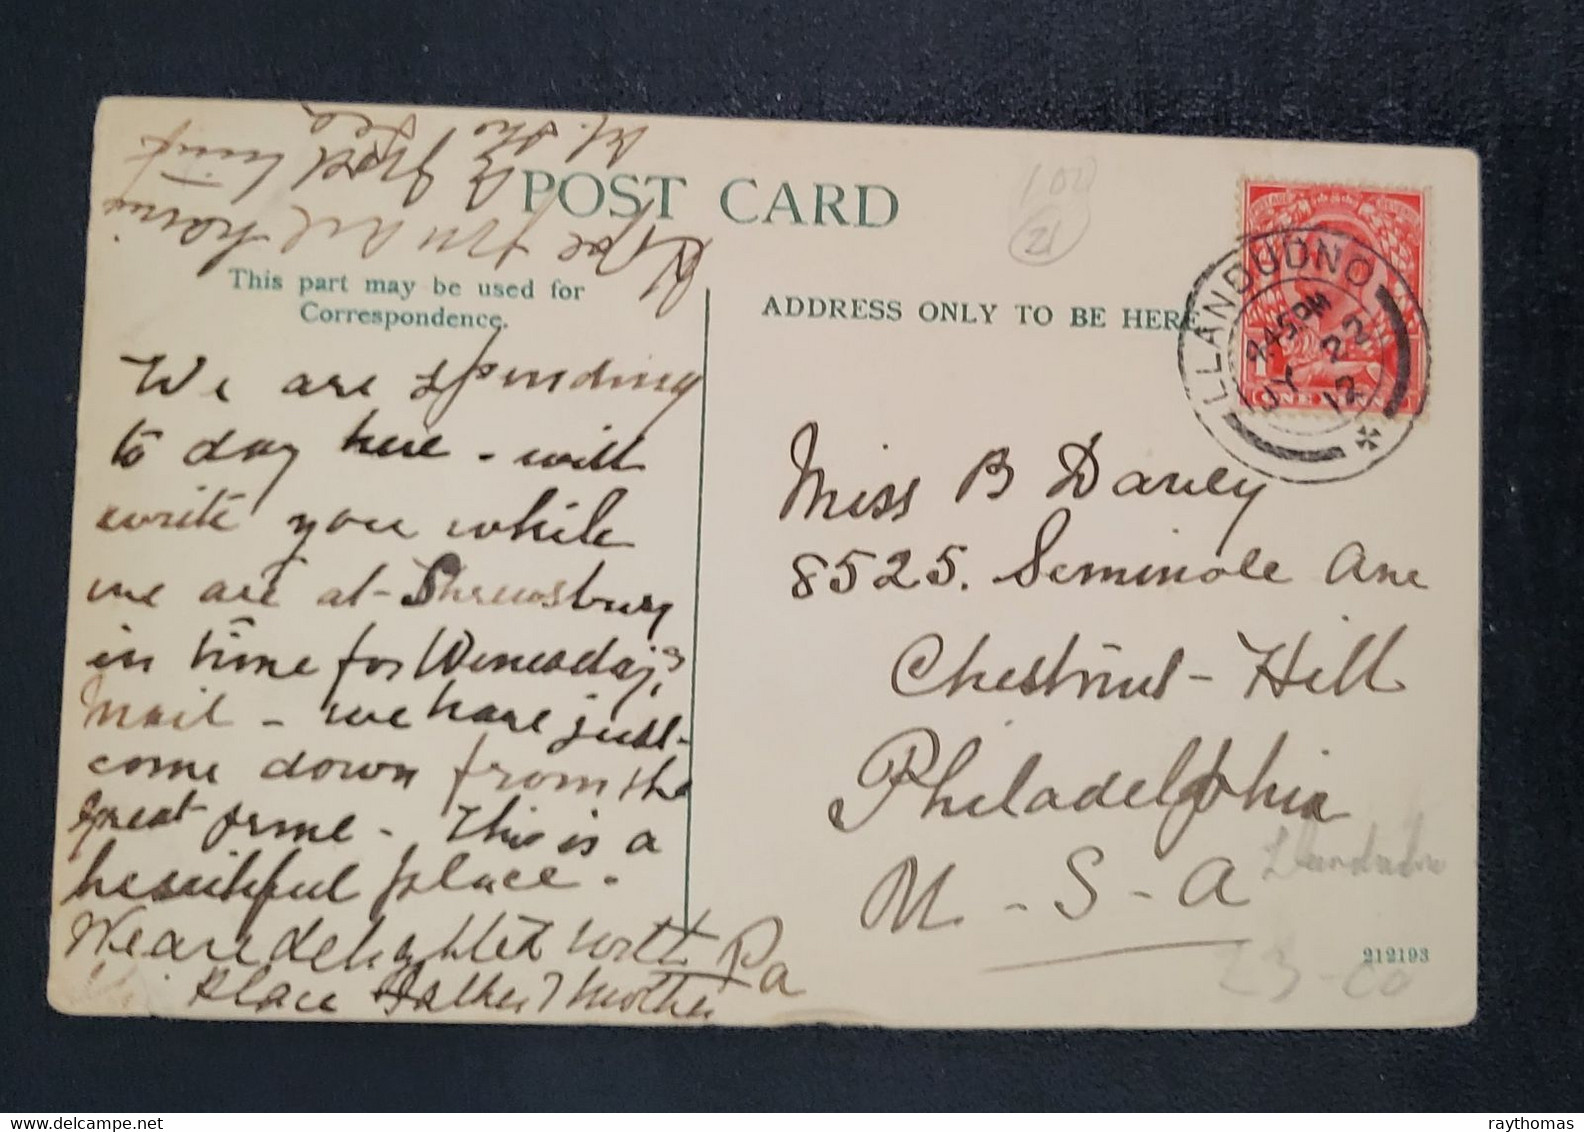 POST CARD
This part may be used for
Correspondence.
ADDRESS ONLY TO BE HERE
We are spending
to day here - will
write you while
we are at Shrewsbury
in time for Wenesday's
Mail - we have just
come down from the
great orme - This is a
beautiful place -
We are delighted with Pa
place Father & Mother
Hope you are having
a good time
at the Sea
LLANDUDNO
9 45 PM
JY 22
12
ONE PENNY
Miss B Darley
8525. Seminole Ave
Chestnut - Hill
Philadelphia
U - S - A
Llandudno
212193
23-00
100
21
www.delcampe.net
raythomas